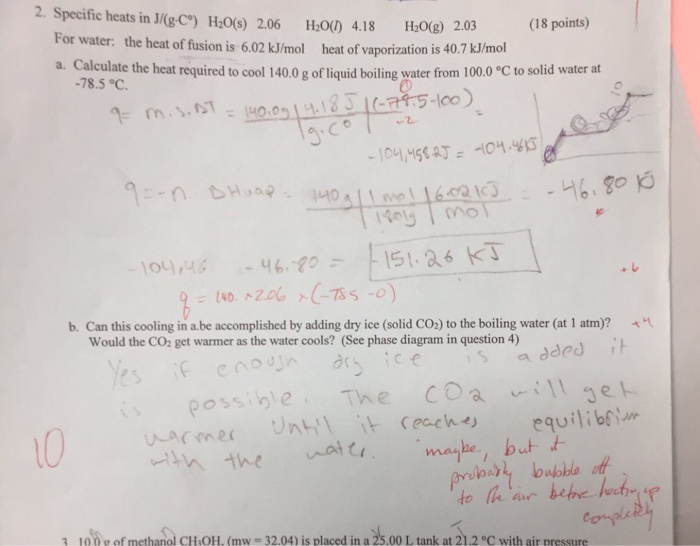 2. Specific heats in J/(g·C°) H₂O(s) 2.06 H₂O(l) 4.18 H₂O(g) 2.03 (18 points)
For water: the heat of fusion is 6.02 kJ/mol heat of vaporization is 40.7 kJ/mol
a. Calculate the heat required to cool 140.0 g of liquid boiling water from 100.0 °C to solid water at
-78.5 °C.
q= m.s.ΔT = 140.0g | 4.18 J | (-78.5-100)
g.C° -2
-104,458.2J = -104.46KJ
q=-n ΔHvap = 140g | 1 mol | 6.02 KJ = -46.80 KJ
mol
-104,46 -46.80 = -151.26 KJ
+6
q = 140. × 2.06 × (-785 -0)
b. Can this cooling in a.be accomplished by adding dry ice (solid CO₂) to the boiling water (at 1 atm)? +4
Would the CO₂ get warmer as the water cools? (See phase diagram in question 4)
Yes if enough dry ice is added it
is possible. The CO2 will get
warmer until it reaches equilibrium
with the water.
10
maybe, but it
probably bubble off
to the air before heating up
completely
3. 10.0 g of methanol CH₃OH, (mw = 32.04) is placed in a 25.00 L tank at 21.2 °C with air pressure